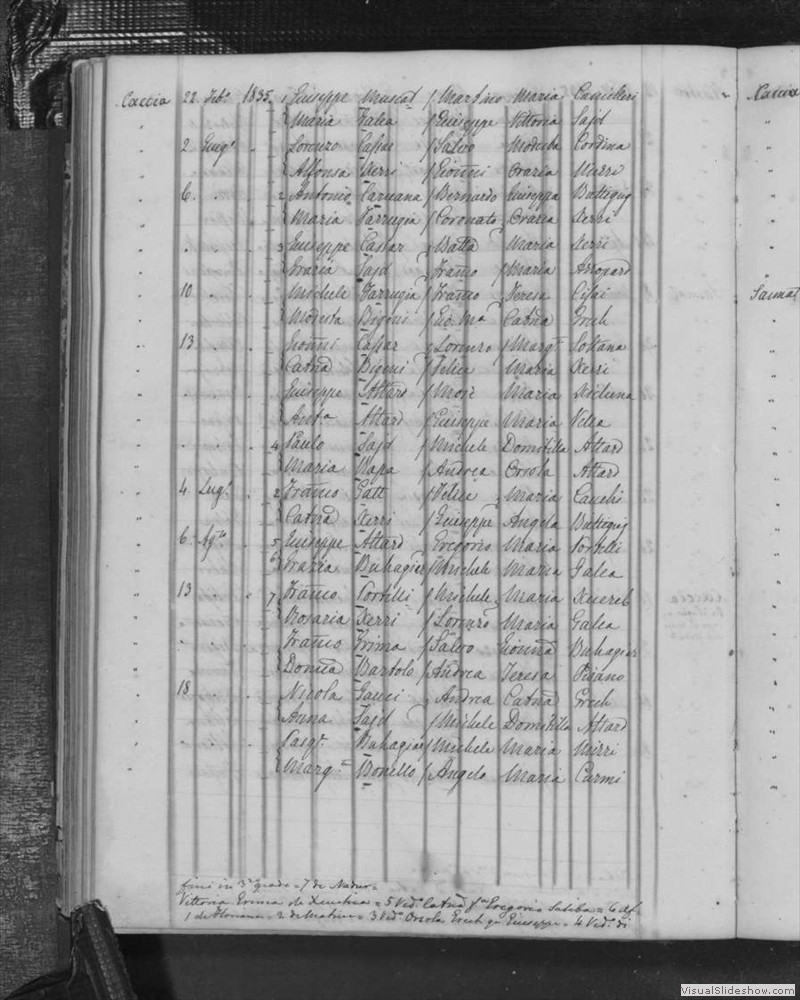 Caccia 22 Feb.º 1835. 1 Giuseppe Muscat / Martino Maria Camilleri
" Maria Galea / Giuseppe Vittoria Sajd
" 2 Giug.º . Lorenzo Cassar / Salvo Modesta Cordina
" Alfonsa Xerri / Giovnni Grazia Mizzi
" 6 . . 2 Antonio Caruana / Bernardo Giuseppa Buttigieg
" Maria Farrugia / Coronato Grazia Xerri
" . . . 3 Giuseppe Cassar / Batta Maria Xerri
" Grazia Sajd / Franco / Maria
" 10 . . Michele Farrugia / Franco Teresa
" Modesta Bigeni / Gio. Mª Catna Grech
" 13 . . Giovnni Cassar / Lorenzo / Marg.ta Soltana
" Catna Bigeni / Felice Maria Xerri
" Giuseppe Attard / Maria
" Ant.a Attard / Giuseppe Maria Vella
" . . . 4 Paulo Sajd / Michele Domitilla Attard
" Maria Napa / Andrea Orsola Attard
" 4 Lug.º . 2 Franco Gatt / Felice Maria Cauchi
" Catna Xerri / Giuseppe Angela Buttigieg
" 6 Ag.to 5 Giuseppe Attard / Gregorio Maria Portelli
" 6 Grazia Buhagiar / Michele Maria Galea
" 13 . . 7 Franco Portelli / Michele Maria Xuereb
" Rosaria Xerri / Lorenzo Maria Galea
" . . . Franco Grima / Salvo Giovnna Buhagiar
" Domca Bartolo / Andrea Teresa Pisano
" 18 . . Nicola Gauci / Andrea Catna Grech
" Anna Sajd / Michele Domitilla Attard
" . . . Pasq.e Buhagiar / Michele Maria Mizzi
" Marg.ta Bonello / Angelo Maria Curmi
fini in 3º grado = 7 de Nadur =
Vittoria Grima de Xeuchia = 5 Ved.ª Catna fª Gregorio Saliba = 6
1 de = 2 de = 3 Ved.º Orsola Grech qm Giuseppe = 4 Ved.º di
Caccia
Sannat
VisualSlideshow.com